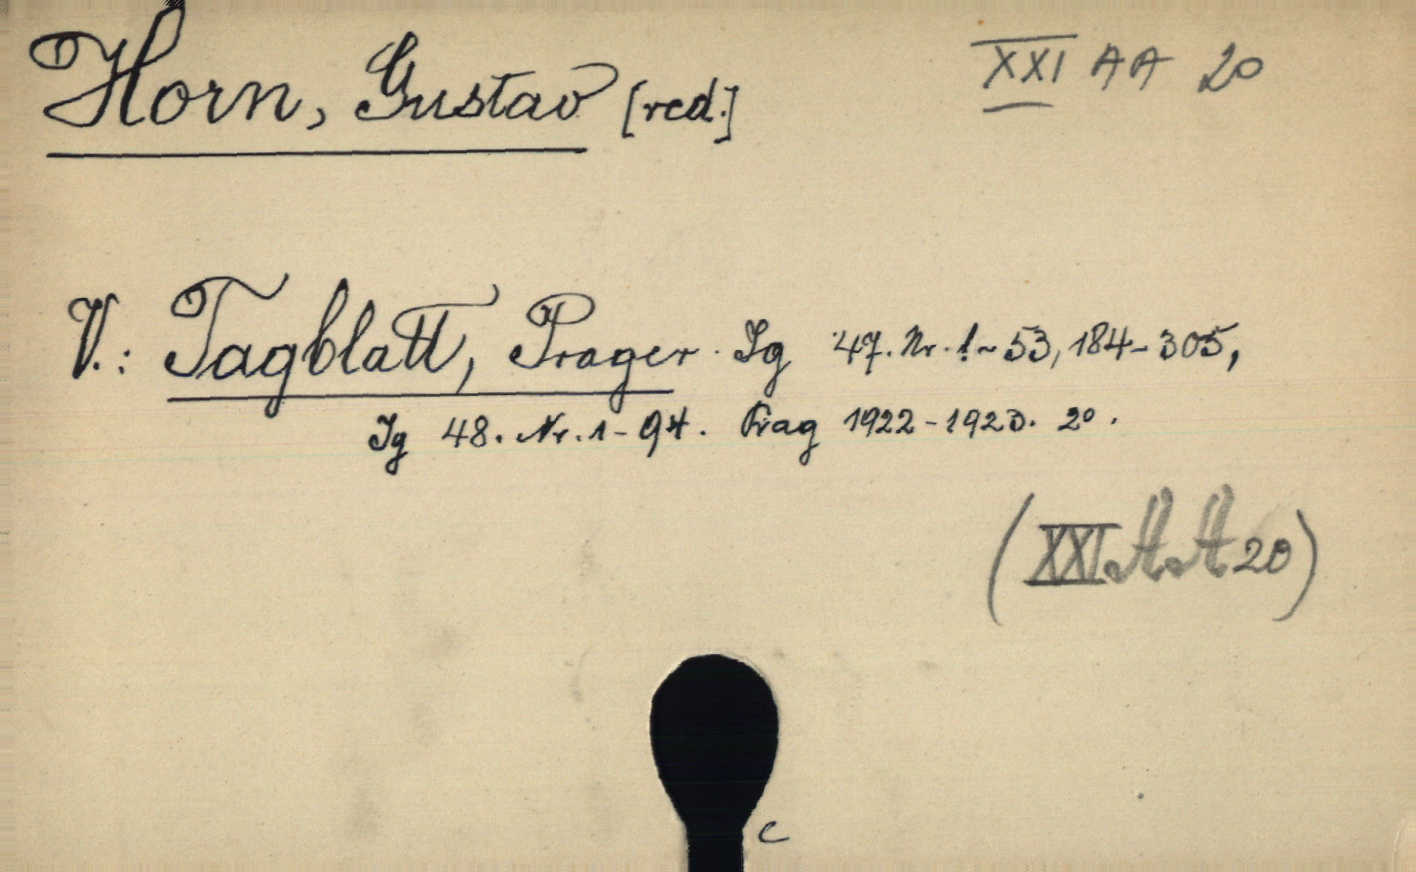 Horn, Gustav [red.]
XXI AA 20
V.: Tagblatt, Prager. Jg 47. Nr. 1-53, 184-305,
Jg 48. Nr. 1-94. Prag 1922-1923. 2°.
(XXI AA 20)
c